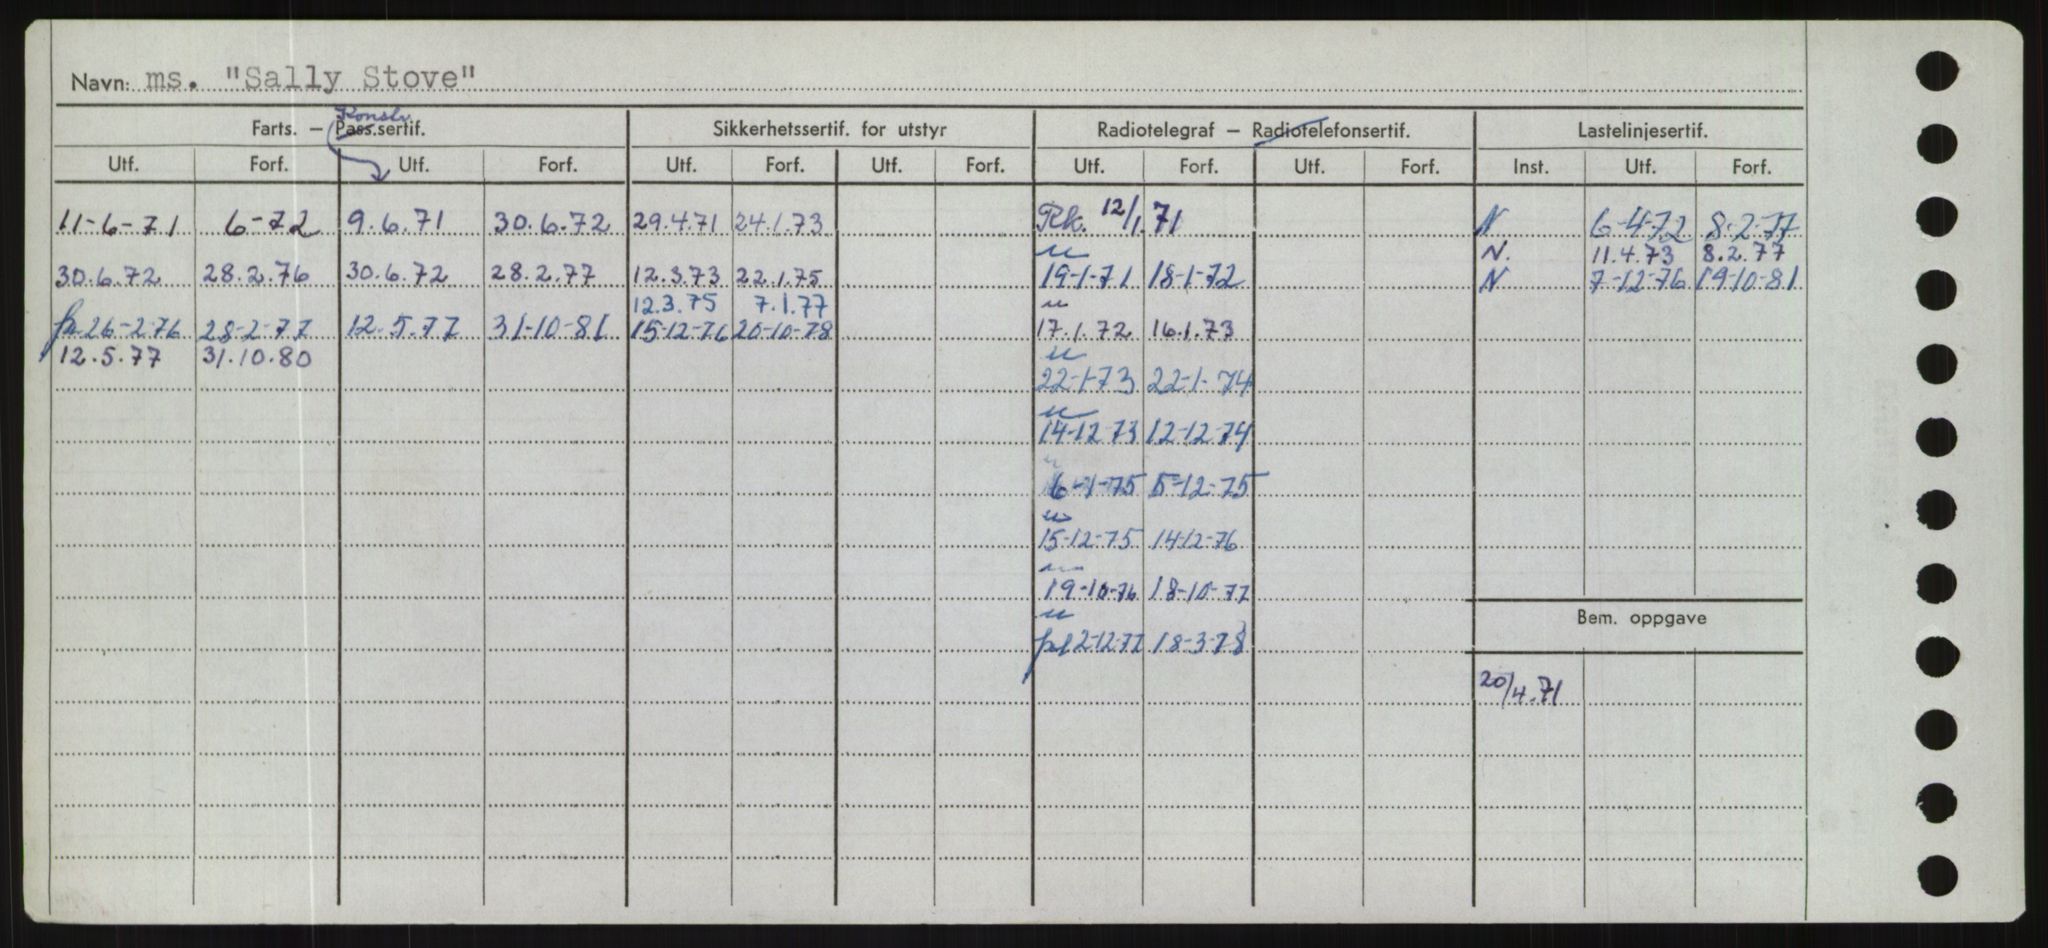 Navn: ms. "Sally Stove"
Konstr.
Farts. — Pass.sertif. Sikkerhetssertif. for utstyr Radiotelegraf — Radiotelefonsertif. Lastelinjesertif.
Utf. Forf. Utf. Forf. Utf. Forf. Utf. Forf. Utf. Forf. Utf. Forf. Inst. Utf. Forf.
11-6-71 6-72 9.6.71 30.6.72 29.4.71 24.1.73 Rk. 12/1.71 N 6-4-72 8-2-77
N. 11.4.73 8.2.77
30.6.72 28.2.76 30.6.72 28.2.77 12.3.73 22.1.75 19-1-71 18-1-72 N 7-12-76 19-10-81
12.3.75 7.1.77
26-2-76 28-2-77 12.5.77 31-10-81 15-12-76 20-10-78 17.1.72 16.1.73
12.5.77 31.10.80
22-1-73 22-1-74
14-12-73 12-12-74
6-1-75 5-12-75
15-12-75 14-12-76
19-10-76 18-10-77
Bem. oppgave
12-12-77 18-3-78
20/4.71